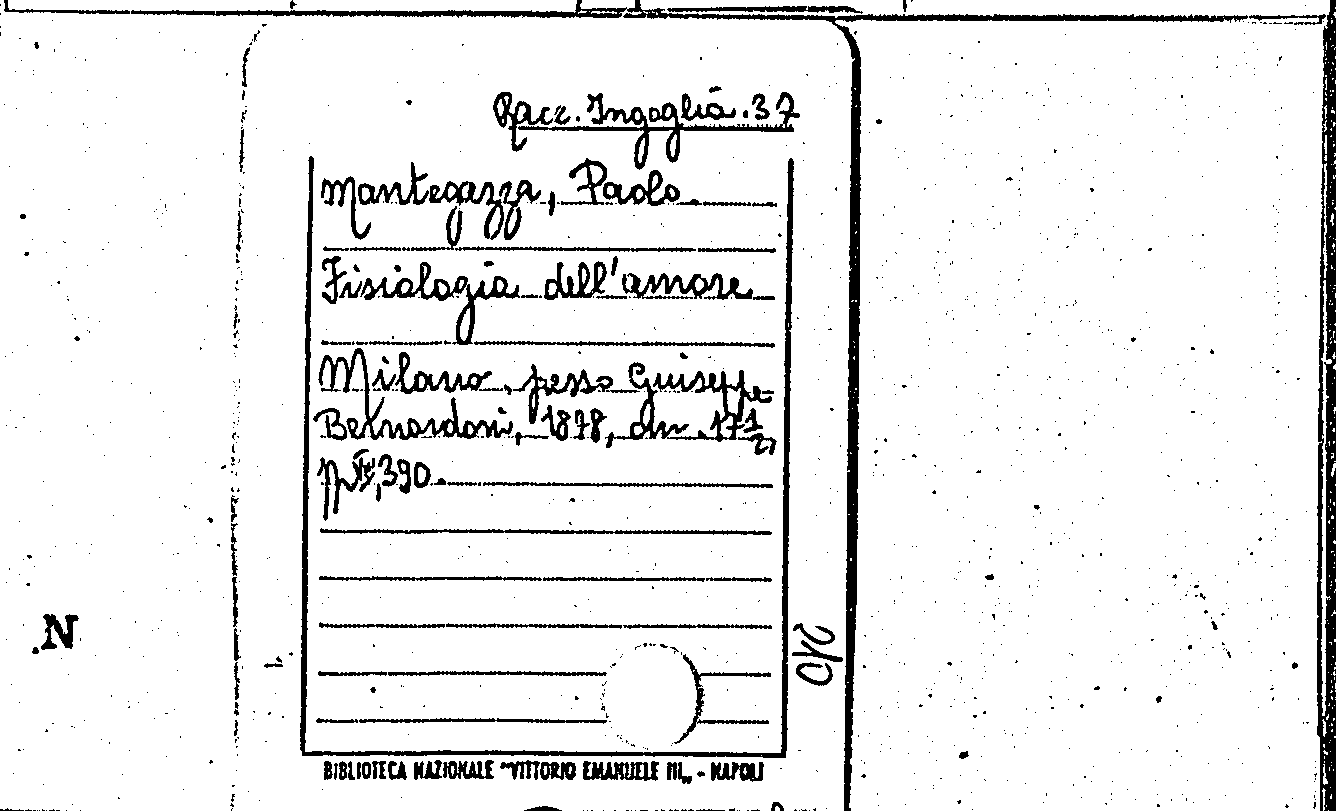 Racc. Ingoglia. 37
Mantegazza, Paolo.
Fisiologia dell'amore
Milano. presso Guiseppe
Bernardoni, 1878, cm. 17 1/2,
pp IV, 390.
N
210
BIBLIOTECA NAZIONALE "VITTORIO EMANUELE III" - NAPOLI